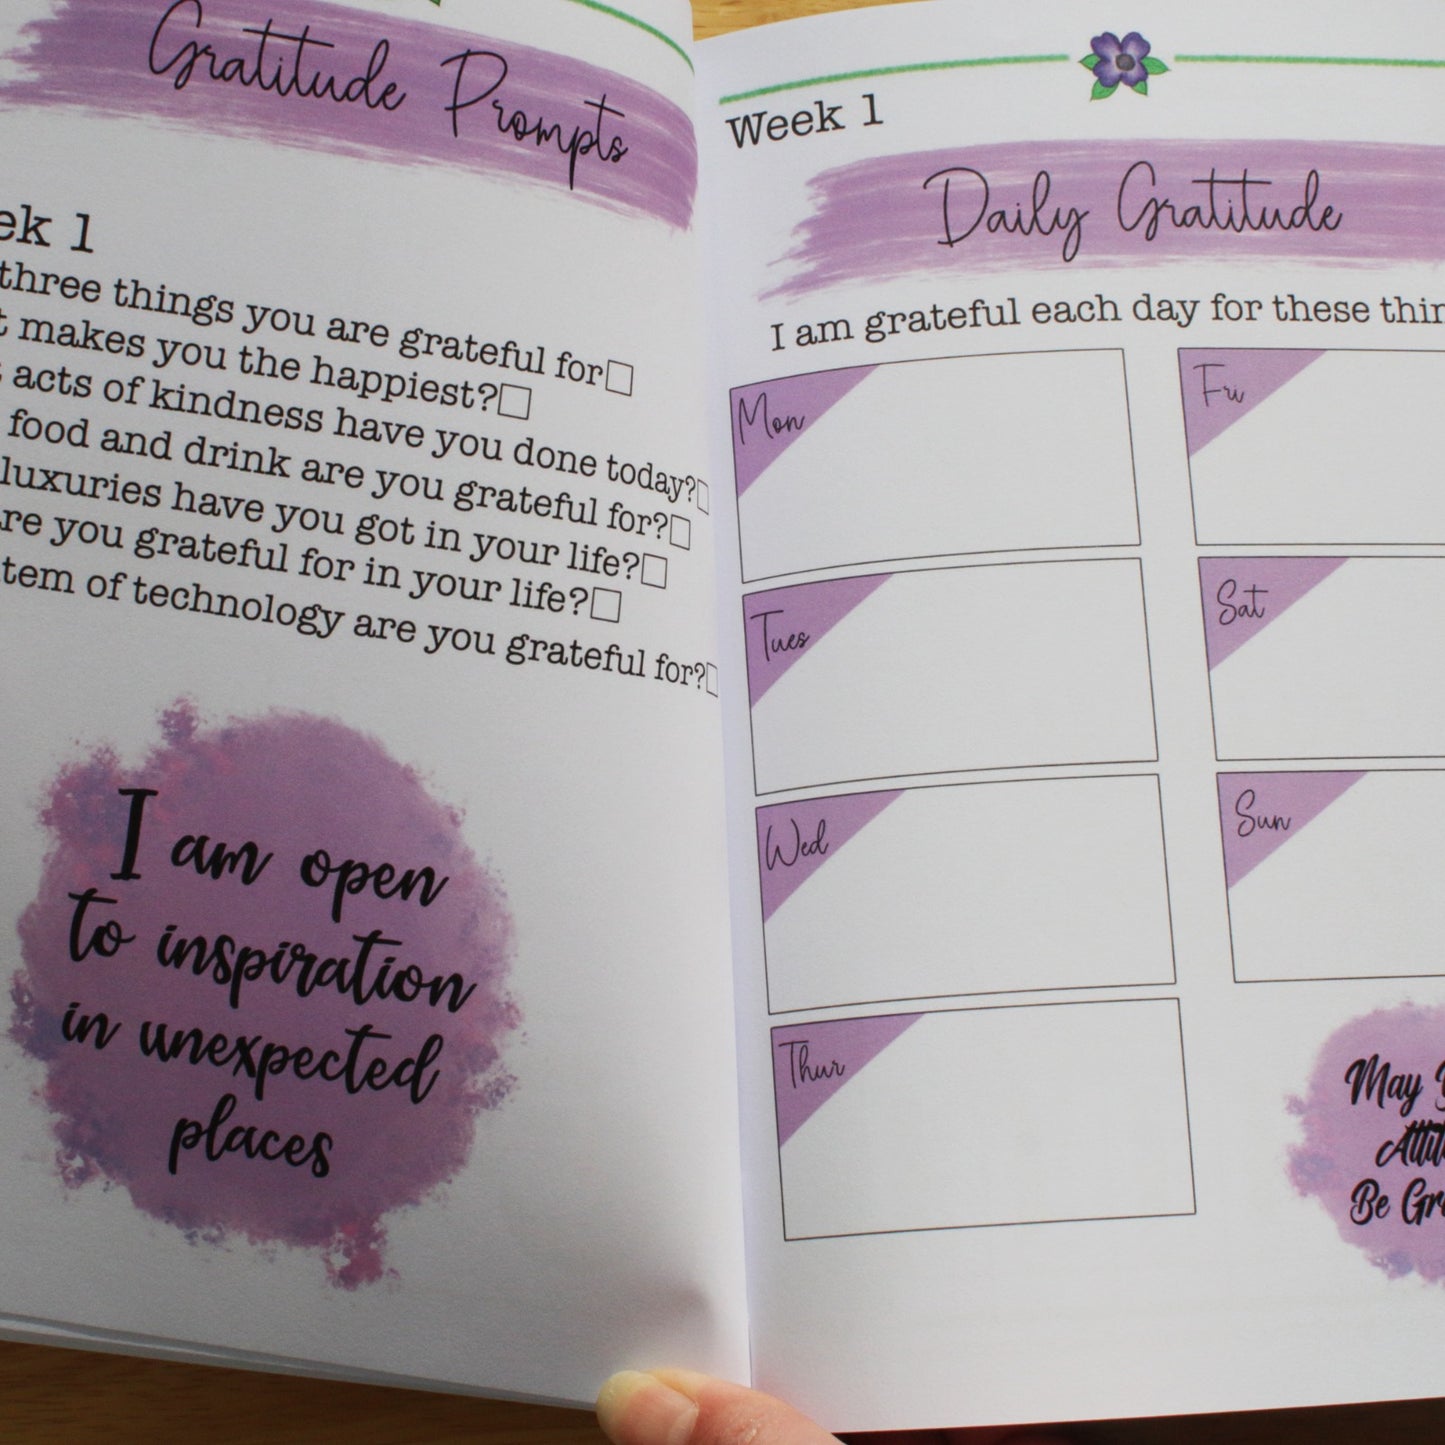 Gratitude Prompts
1
three things you are grateful for
makes you the happiest?
acts of kindness have you done today?
food and drink are you grateful for?
luxuries have you got in your life?
you grateful for in your life?
of technology are you grateful for?
I am open
to inspiration
in unexpected
places
Week 1
Daily Gratitude
I am grateful each day for these
Mon
Fri
Tues
Sat
Wed
Sun
Thur
May
Be